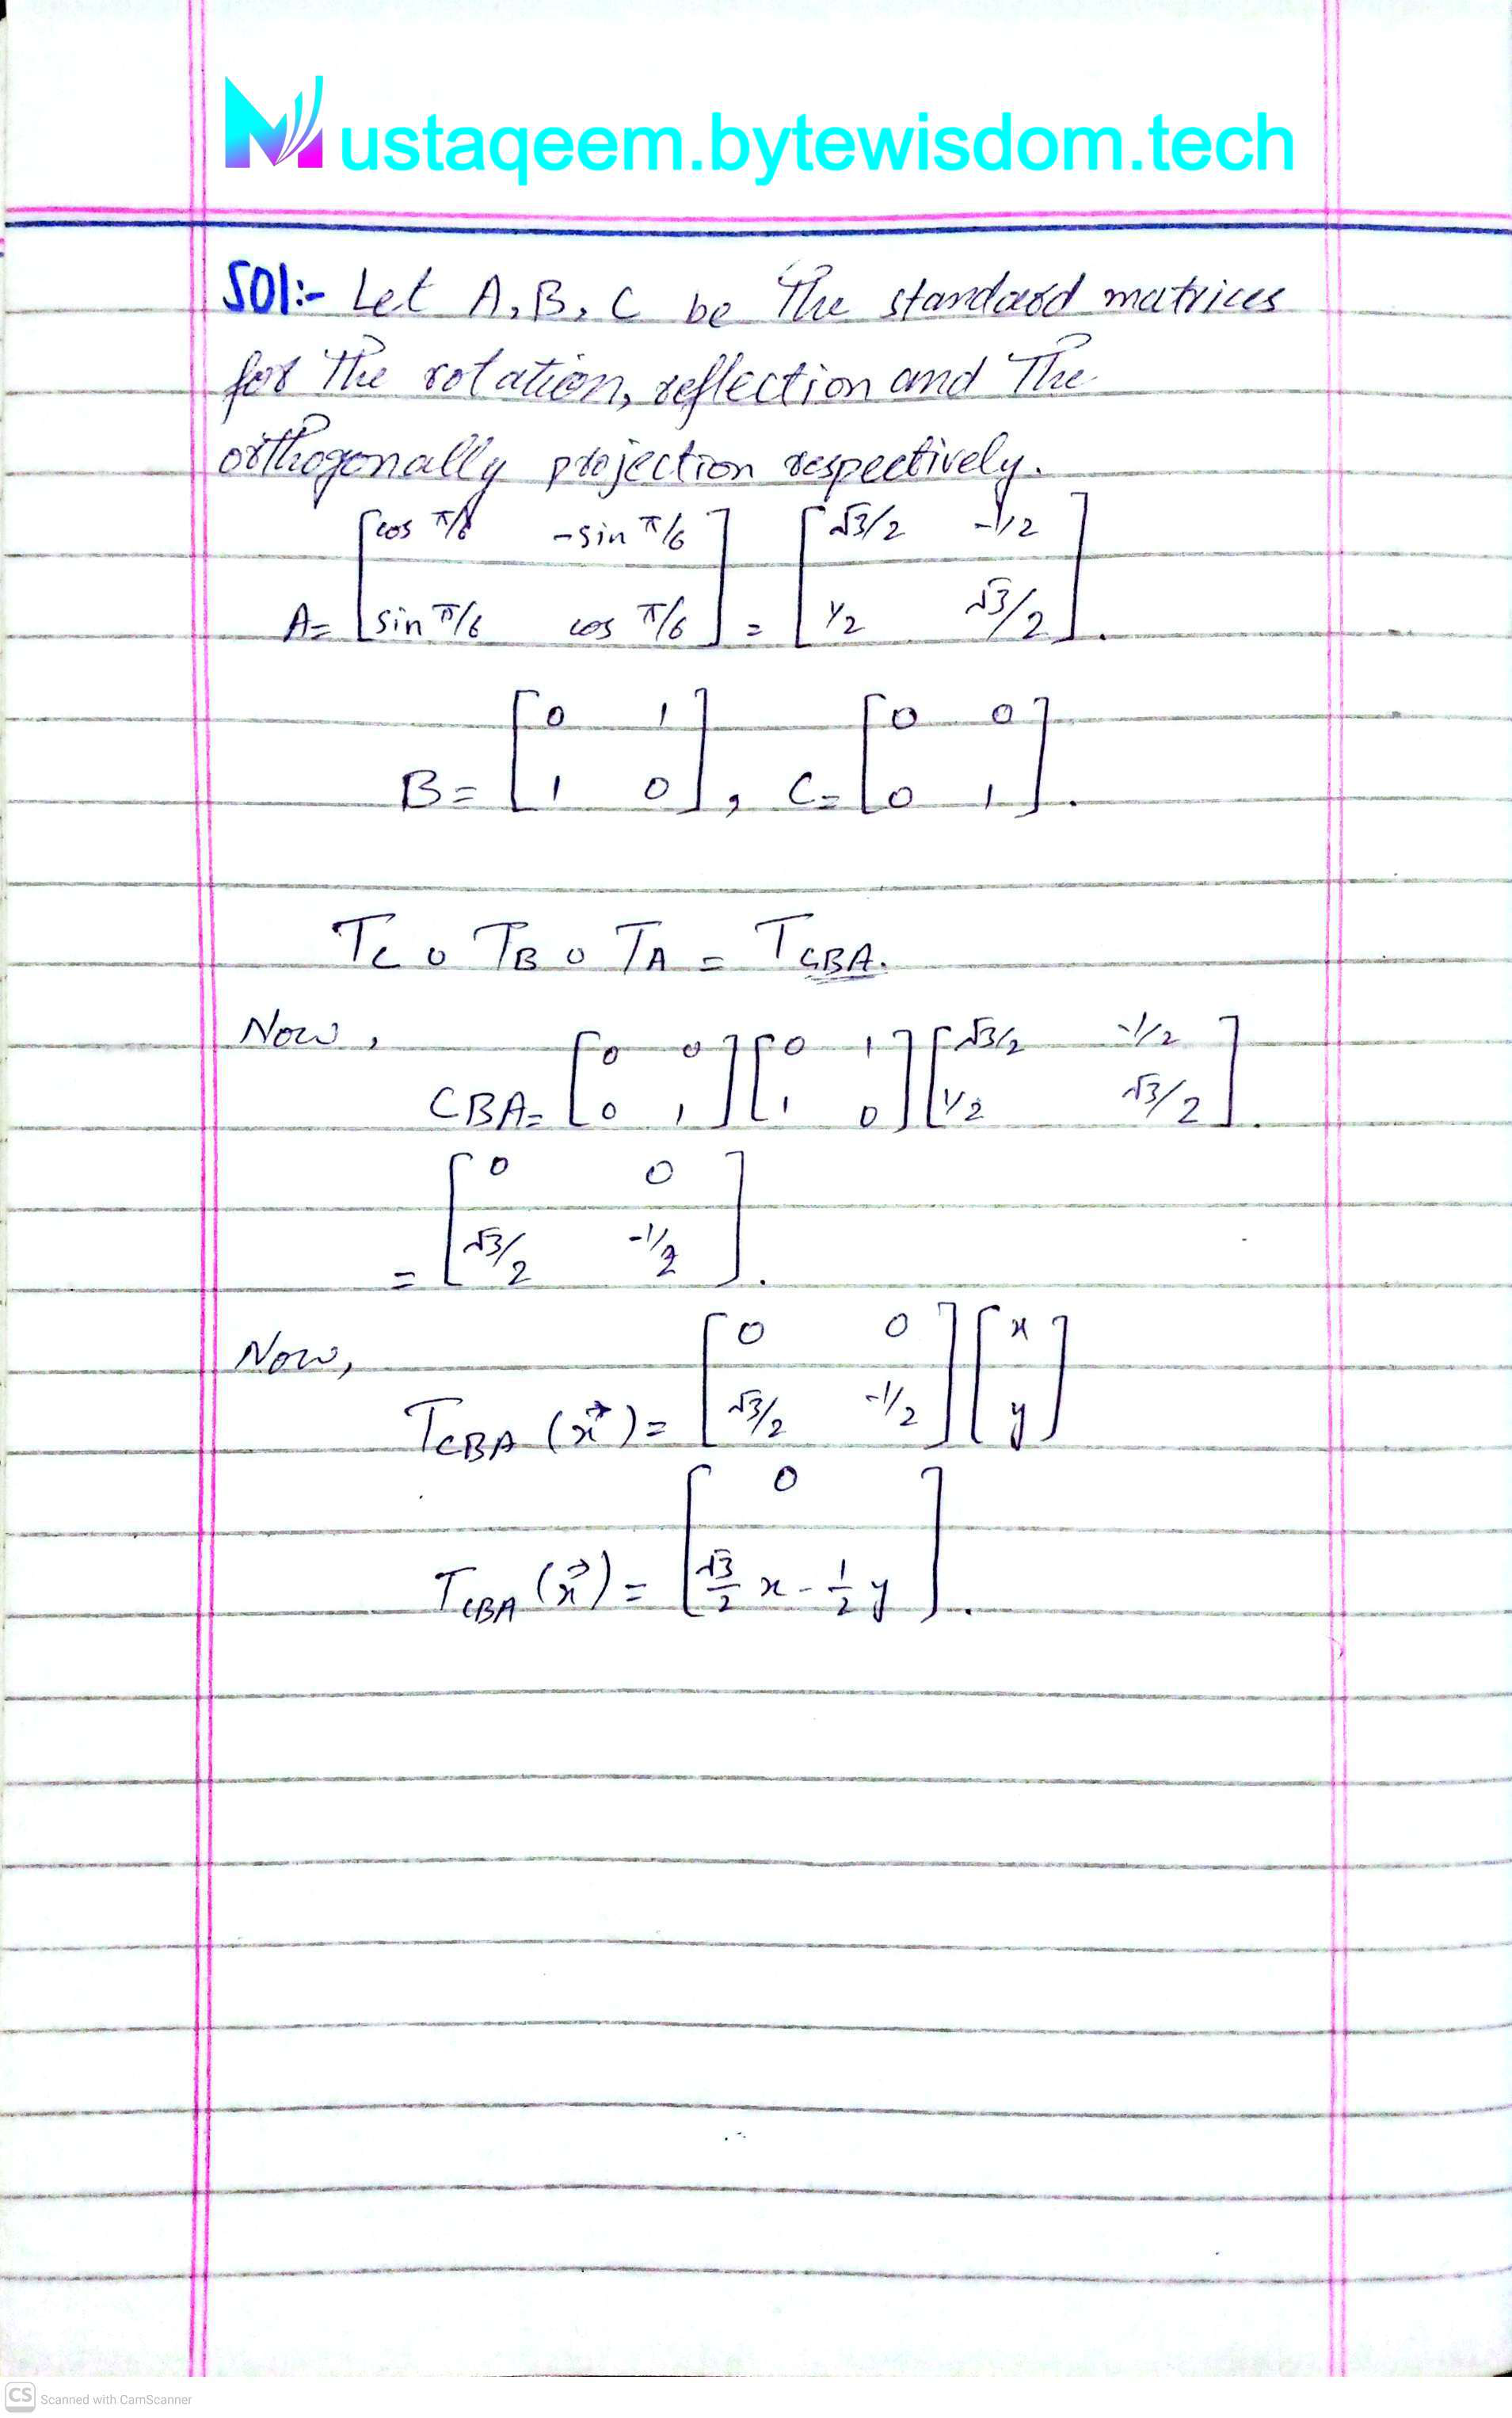 Mustaqeem.bytewisdom.tech
Sol:- Let A, B, C be The standard matrices
for The rotation, reflection and The
orthogonally projection respectively.
A= [cos π/6 -sin π/6; sin π/6 cos π/6] = [√3/2 -1/2; 1/2 √3/2].
B= [0 1; 1 0], C= [0 0; 0 1].
Tc o TB o TA = TCBA.
Now,
CBA= [0 0; 0 1] [0 1; 1 0] [√3/2 -1/2; 1/2 √3/2].
= [0 0; √3/2 -1/2].
Now,
TCBA (x⃗)= [0 0; √3/2 -1/2] [x; y]
TCBA (x⃗)= [0; √3/2 x - 1/2 y].
CS Scanned with CamScanner